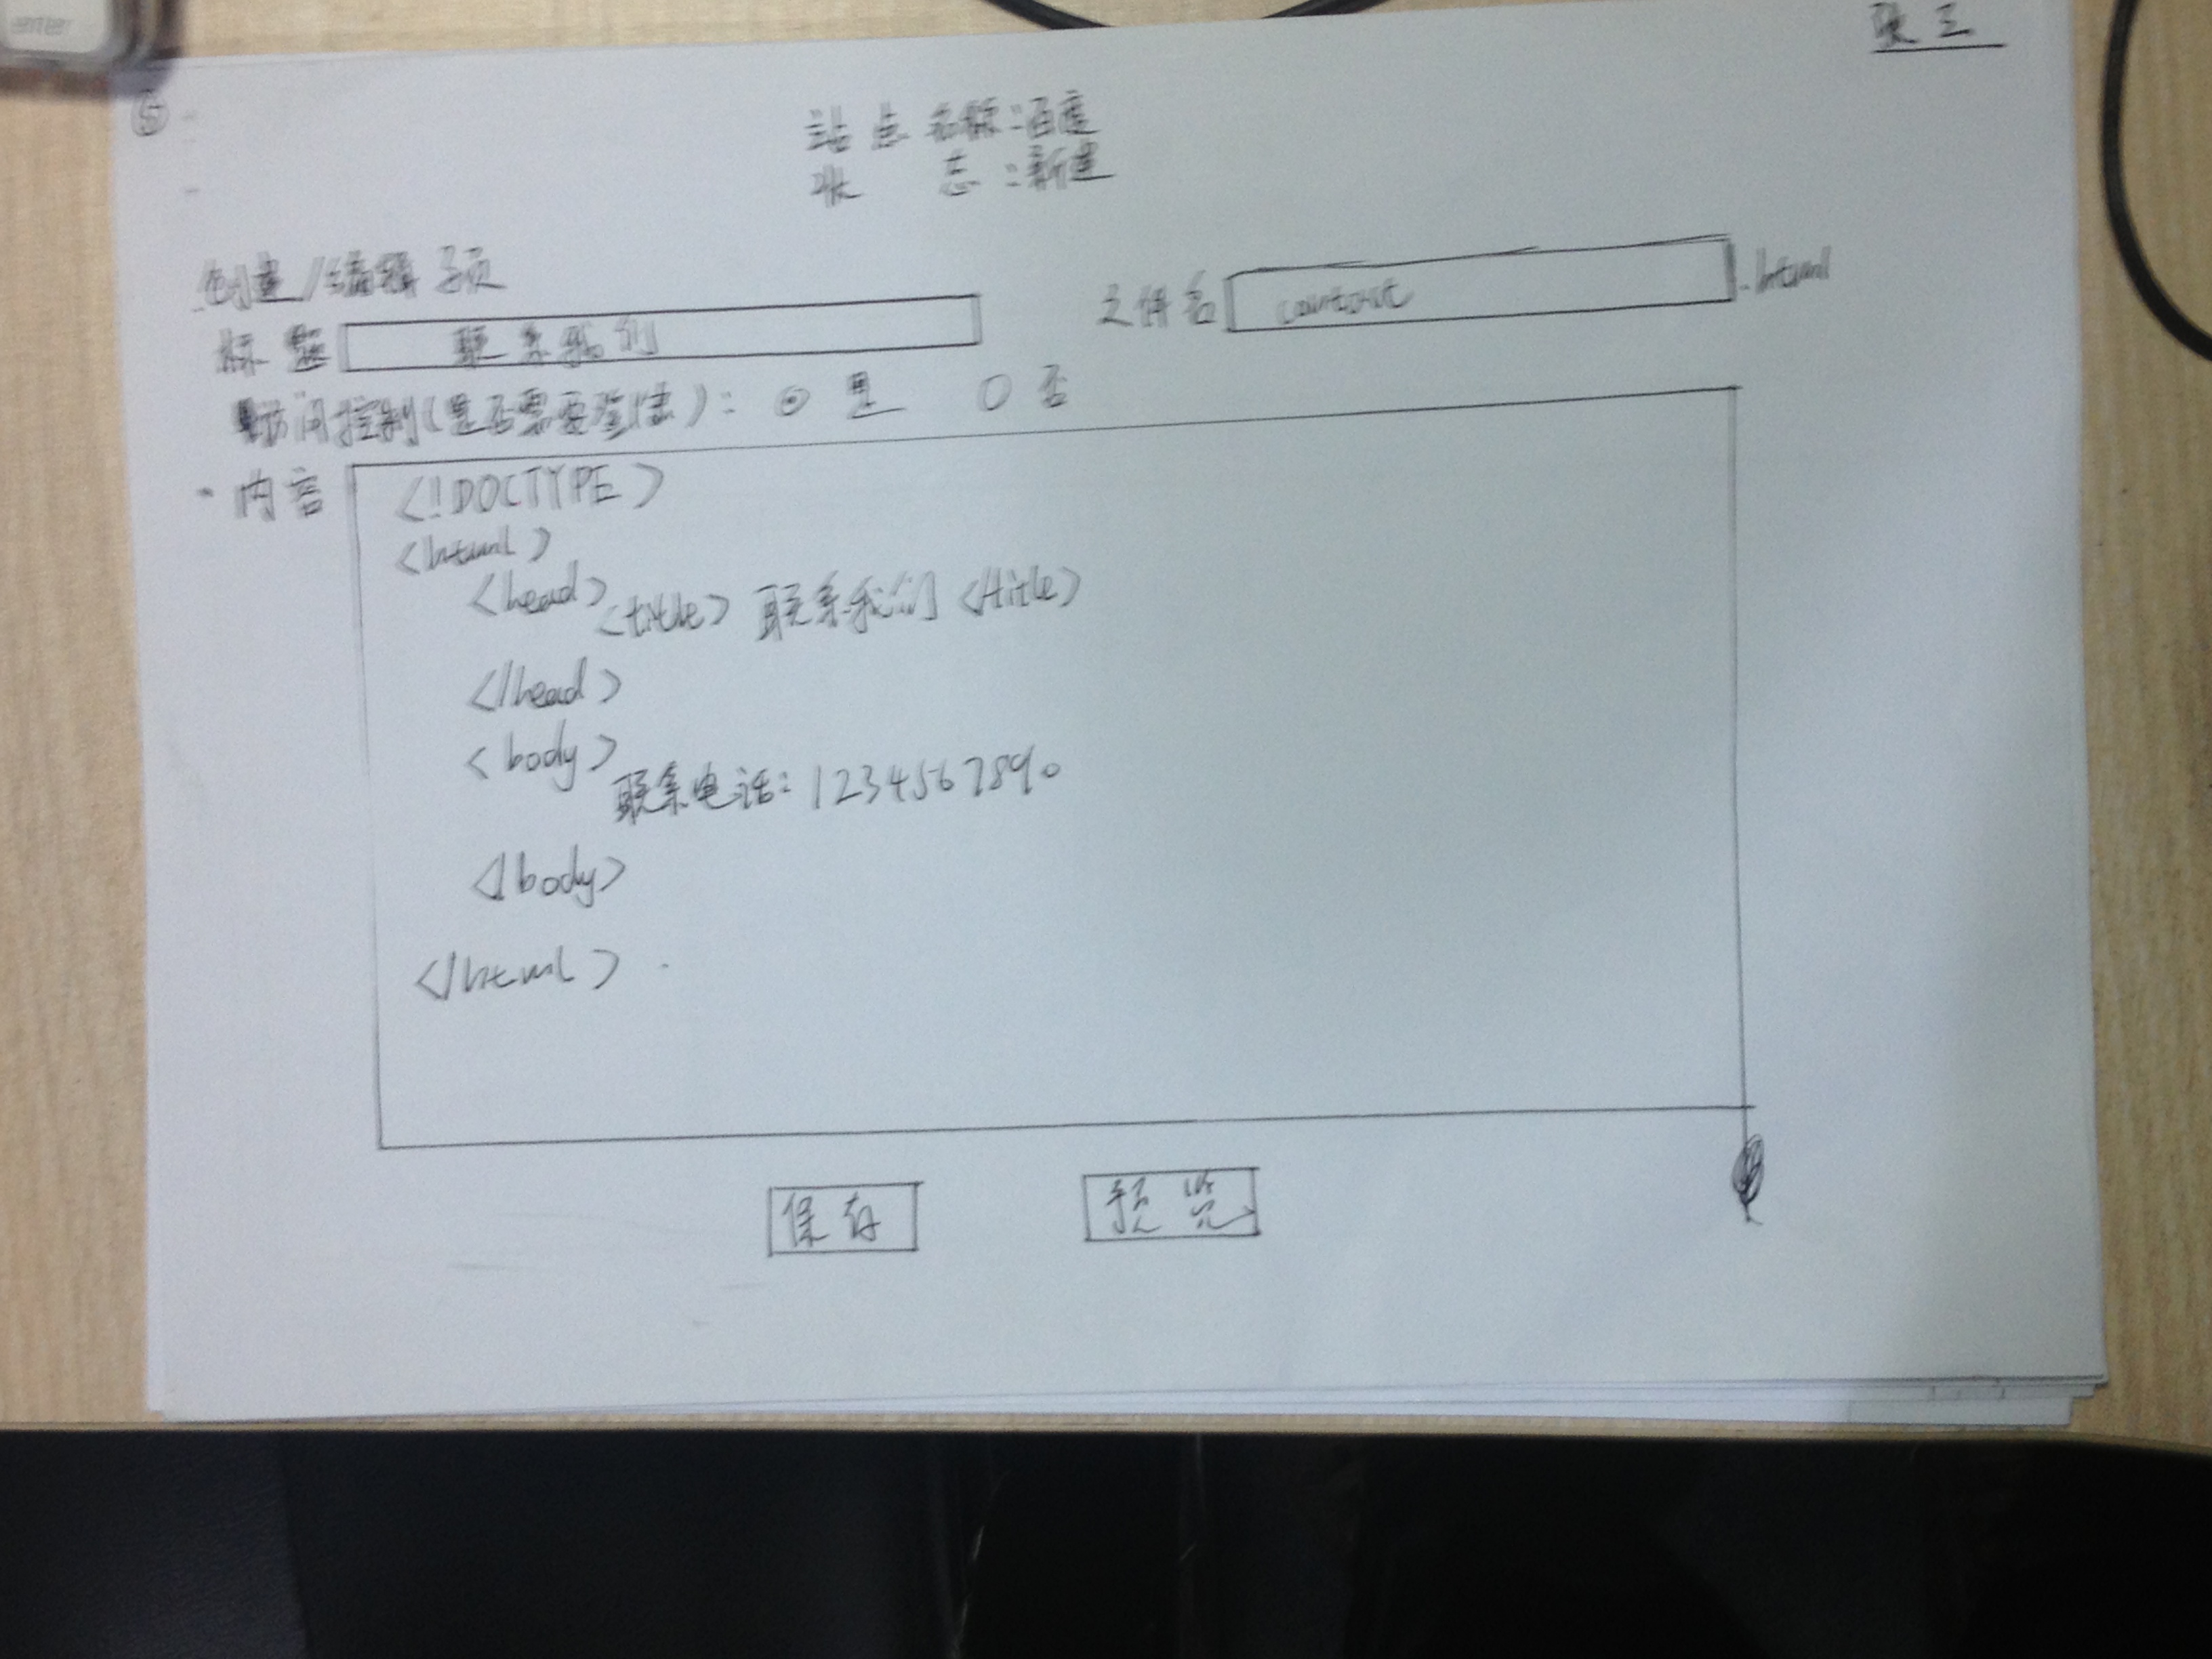 enter
张三
⑤
站点名称:百度
状 态:新建
创建/编辑 子页
标题 联系我们 文件名 contact .html
访问控制(是否需要验证): ⊙ 是 ○ 否
内容 <!DOCTYPE>
<html>
<head>
<title> 联系我们 </title>
</head>
<body>
联系电话: 1234567890
</body>
</html>
保存 预览